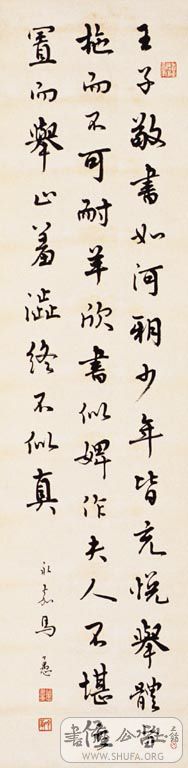 王子敬書如河朔少年皆充悅舉體沓
拖而不可耐羊欣書似婢作夫人不堪位
置而舉止羞澀終不似真
永嘉馬公愚
WWW.SHUFA.ORG